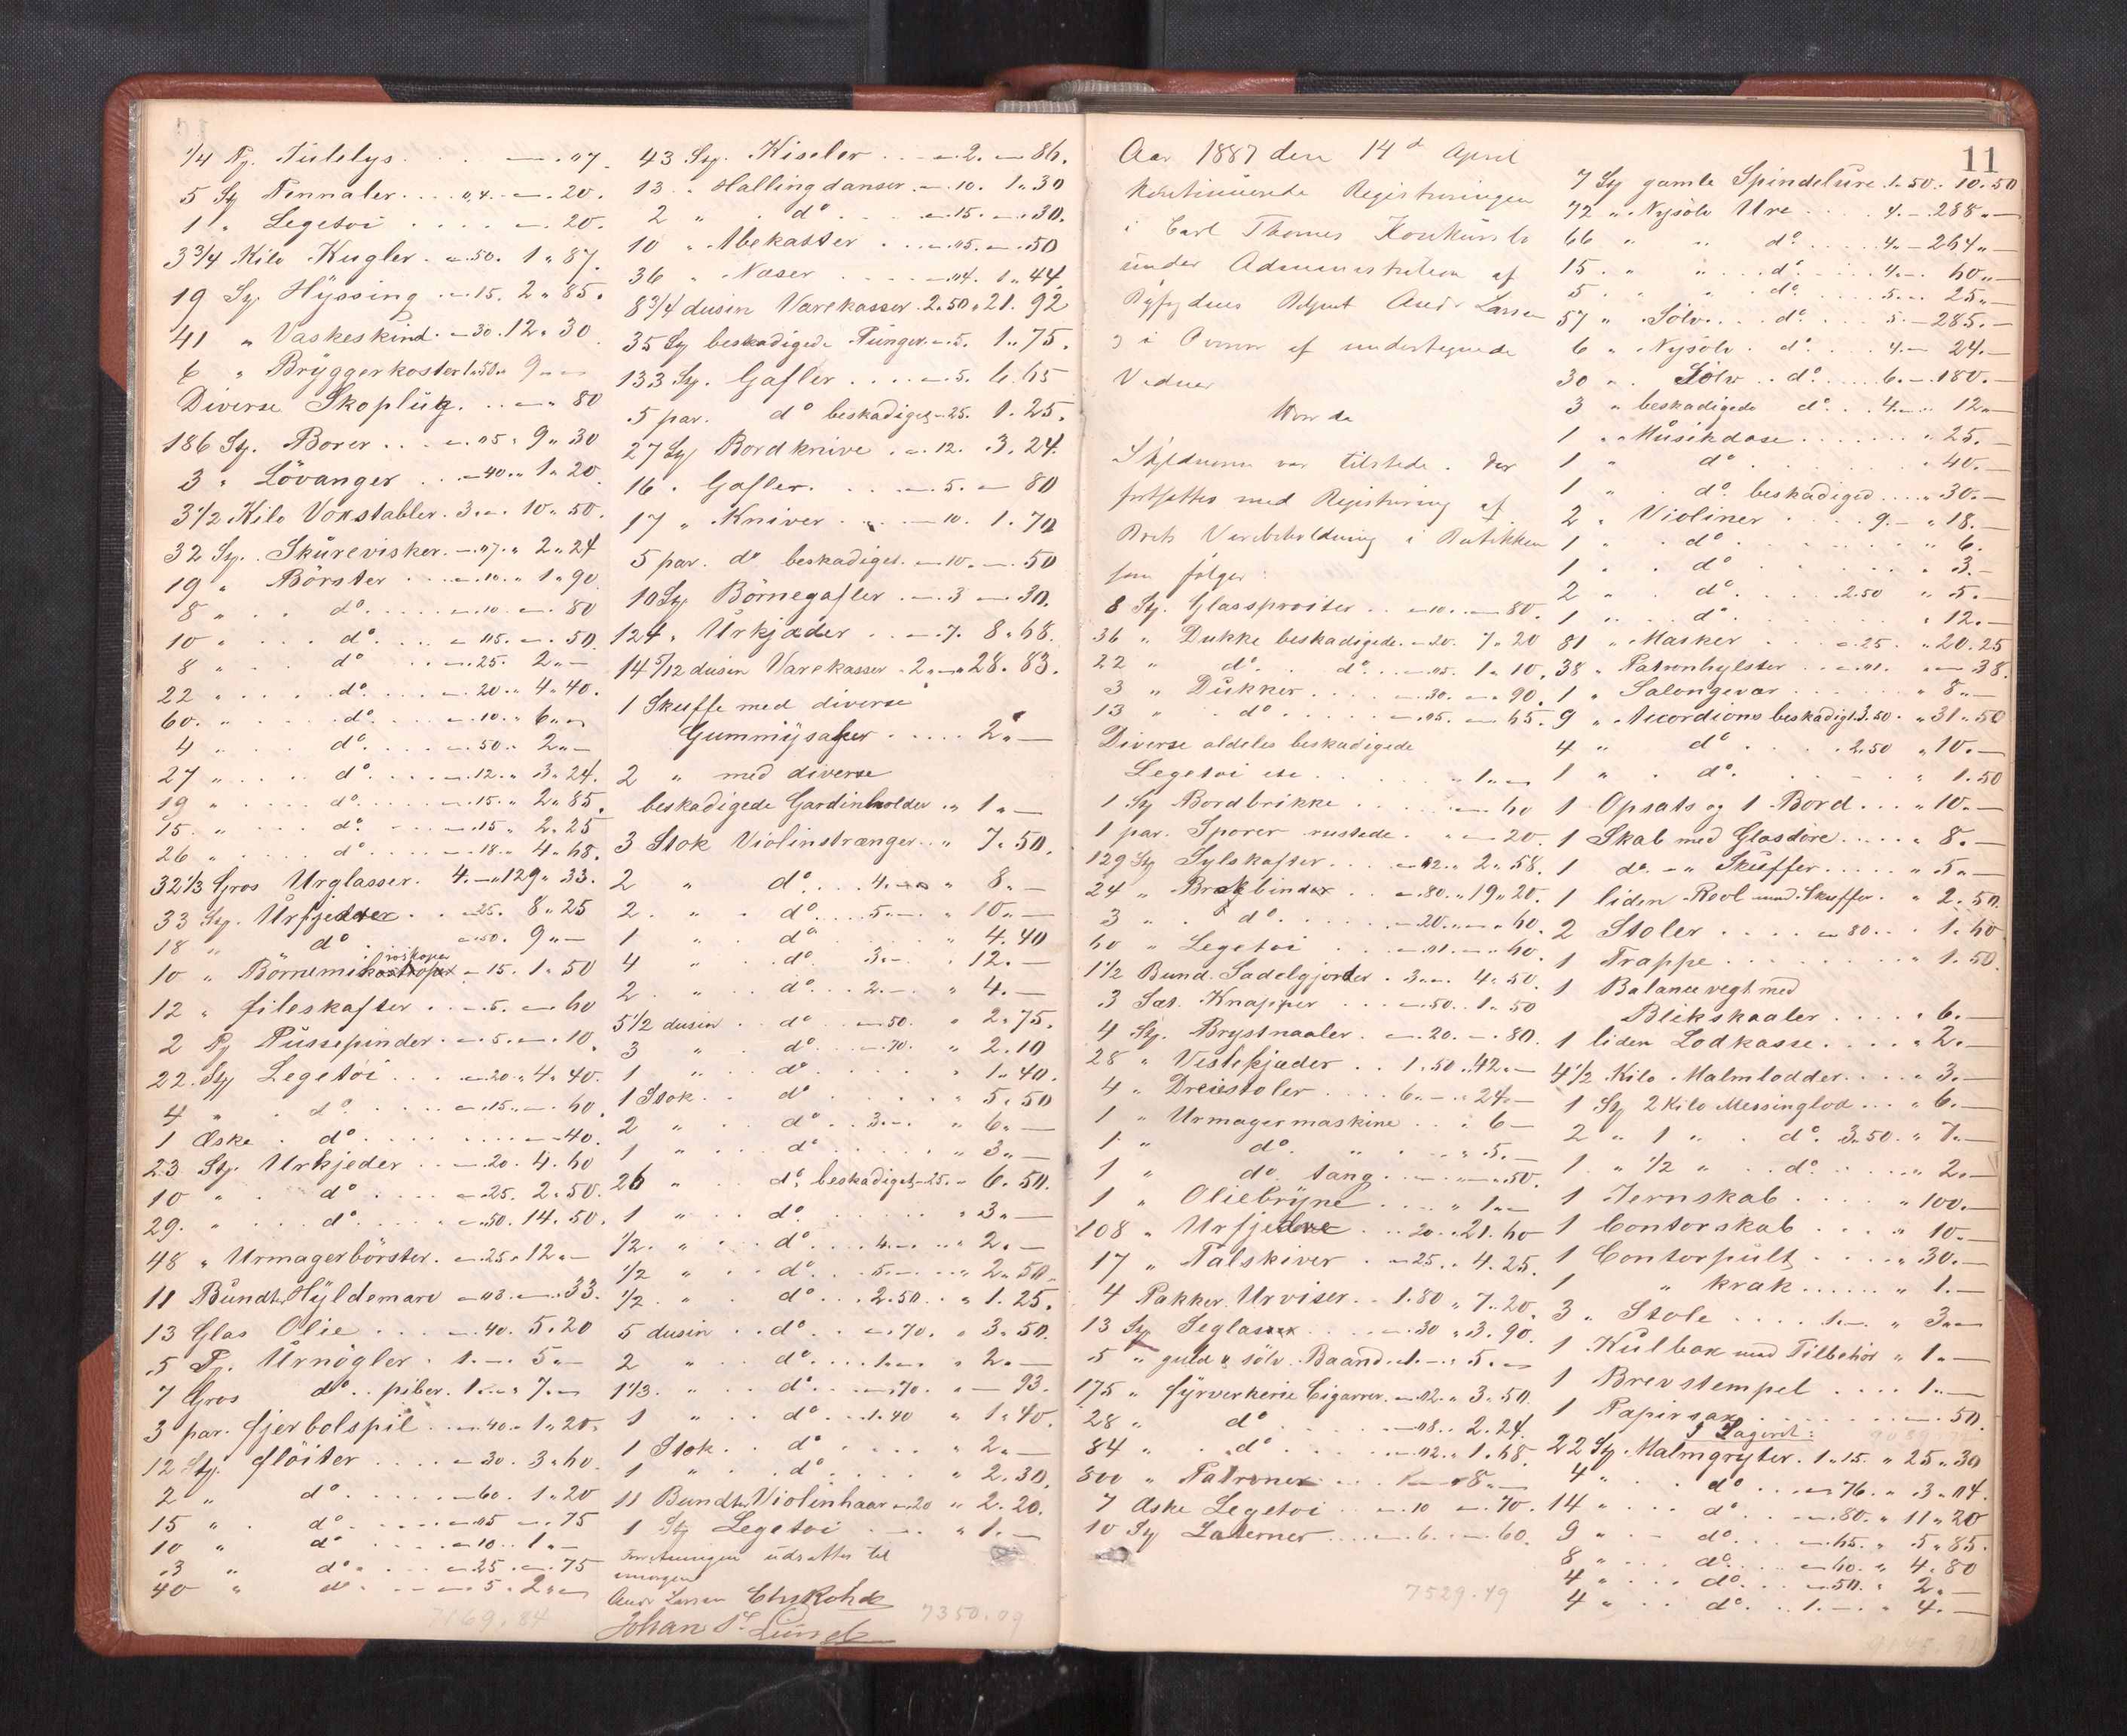 1/4 Pj. Tülelys . . . „ — . 07
5 Stj Tennaler . . . . „ 4 . — . 20 .
1 „ Legetøi . . . . — . 20 .
3 3/4 Kilo Kugler . — . 50 . 1 „ 87 .
19 Stj Hÿssing . — . 15 . 2 „ 85 .
41 „ Vaskeskind . — 30 . 12 „ 30
6 „ Brÿggerkoster 1 „ 50 „ 9 „ —
Diverse Skoplüg . . . — „ 80
186 Stj. Borer . . . — . 05 „ 9 „ 30
3 „ Lövanger . . — 40 „ 1 „ 20
3 1/2 Kilo Voxstabler . 3 „ — . 10 „ 50 .
32 Stj. Skürevisker . — . 07 „ 2 „ 24
19 „ Börster . . . — 10 „ 1 „ 90
8 „ . . do . . . . — 10 . — . 80
10 „ . . . do . . . — . 05 . — . 50
8 „ . . do . . — . 25 . 2 „ —
22 „ . . . do . . . — . 20 „ 4 „ 40 .
60 . „ . . . do . . . — . 10 „ 6 „ —
4 „ . . . do . . . — . 50 „ 2 „ —
27 „ . . . do . . . — . 12 „ 3 „ 24 .
19 „ . . . do . . . — . 15 „ 2 „ 85 .
15 . „ . . . do . . . — . 15 „ 2 . 25
26 „ . . . do . . . — . 18 „ 4 „ 68 .
32 1/3 Gros Urglasser . 4 . — „ 129 „ 33 .
33 Stj. Ürfjedrer . . — 25 . 8 „ 25
18 „ do . . — 50 . 9 „ —
10 „ Börnemi kroskoper — 15 . 1 „ 50
12 „ fileskafter . . — . 5 . — 60
2 Pj Püssepinder . — . 5 . — . 10 .
22 . Stj Legetöi . . . — . 20 „ 4 „ 40 .
4 „ . do . . . . — . 15 „ — . 60 .
1 Æske . do . . . . . . — 40 .
23 Stj. Ürkjeder . . — . 20 . 4 . 60
10 „ . do . . . — . 25 . 2 . 50 .
29 . „ . . do . . . — . 50 . 14 . 50 .
48 „ Ürmagerbörster . — 25 „ 12 „ —
11 Bündter Hÿldemarv — 03 — . 33 .
13 Glas Olie . . . — . 40 . 5 . 20
5 Pj. Ürnögler . 1 . — . 5 „ —
7 Gros do . . piber . 1 „ — „ 7 „ —
3 par . fjerbolspil . . — . 40 „ 1 „ 20 .
12 Stj. flöiter . . . . — . 30 . 3 „ 60 .
2 „ do . . . . — . 60 . 1 „ 20
15 „ do . . . . — . 05 — . 75
10 „ do . . . — . 10 . . 1 „ —
3 „ do . . . — . 25 . — . 75
40 „ do . . — . 5 . 2 „ —
7169.84
43 Stj. Kiseler . . . — . 2 . — 86 .
13 . „ Hallingdanser . — . 10 . 1 „ 30
2 „ . do . . . . — . 15 . — . 30 .
10 „ Abekatter . . . — . 05 . — . 50
36 „ Næser . . . . — . 04 . 1 „ 44 .
8 3/4 dusin Varekasser . 2 . 50 „ 21 . 92
35 Stj beskadigede Pünger . — . 5 . 1 . . 75 .
133 Stj. Gafler . . . . — . 5 . 6 . 65
5 par . do beskadiget „ 25 . 1 . 25 .
27 Stj Bordknive . . — . 12 . . 3 . 24 .
16 . Gafler . . . . — . 5 . — 80
17 „ Kniver . . . — . 10 . 1 . 70
5 par . do beskadiget . — 10 . — . 50
10 Stj Börnegafler . . — . 3 — . 30 .
124 „ Ürkjæder . . . — . 7 . 8 „ 68 .
14 5/12 dusin Varekasser . 2 „ — „ 28 . 83 .
1 Skuffe med diverse
Gummÿsager . . . . . 2 „ —
2 „ med diverse
beskadigede Gardinholder . „ 1 „ —
3 Stok Violinstrænger . . „ 7 „ 50 .
2 „ do . . . 4 . — „ 8 „ —
2 . „ . do . . . 5 . — . „ 10 „ —
1 „ . . do „ 4 . 40
4 „ . . do 3 . — . 12 . —
2 . „ . do . . 2 . — . „ 4 . —
5 1/2 dusin . . do . . — 50 . „ 2 „ 75 .
3 „ . do . . — . 70 . „ 2 . 10
1 „ . . do . . . . . 1 „ 40 .
1 Stok . . do . . . . . 5 „ 50
2 „ . . do . . 3 . — . „ 6 „ —
1 „ . . do . . . . . „ 3 „ —
26 „ . . do . beskadiget „ 25 . „ 6 . 50 .
1 „ . . do . . . . . „ 3 „ —
1/2 . „ . . do . . . 4 . — . . „ 2 . —
1/2 „ . . do . . . 5 . — . . „ 2 „ 50 .
1/2 . „ . . do . . . 2 . 50 . . „ 1 . 25 .
5 dusin . . do . . . — . 70 . „ 3 „ 50 .
2 „ . . do . . . 1 . — . „ 2 . —
1 1/3 . „ . . do . . . — . 70 . „ — 93 .
1 „ . . do . . 1 . 40 „ 1 „ 40 .
1 Stok . . do . . . . „ 2 „ —
1 „ . . do . . . . „ 2 . 30 .
11 Bundter Violinhaar „ 20 „ 2 . 20 .
1 Stj Legetøi . . . . „ 1 . —
Forretningen udsattes til
imorgen
Andr Larsen Chr Rohde
Johan Lund
7350.09
11
Aar 1887 den 14de April
kontinuerede Registreringen
i Carl Thomes Konkursbo
under Administration af
Byfogdens Betjent Andr Larsen
og i Overvær af undertegnede
Vidner
Hvorda
Skyldneren var tilstede . Der
fortsattes med Registrering af
Boets Varebeholdning i Butikken
som følger :
8 Stj. Glassproiter . . — 10 . — 80 .
36 „ Dukke beskadigede . — 20 . 7 „ 20
22 „ do . . do . . . — . 05 . 1 „ 10 .
3 „ Dükker . . . . — . 30 . — . 90 .
13 „ . do . . . . . — . 05 . — 65 .
Diverse aldeles beskadigede
Legetøi etc . . . . . „ 1 „ —
1 Stj Bordbrikke . . . . . — 60
1 par . Sporer rustede . . „ — 20 .
129 Stj Sylskafter . . . — . 02 . „ 2 „ 58 .
24 „ Brokbinder . . — . 80 . „ 19 „ 20 .
3 „ . do . . . . — . 20 . — „ 60 .
60 „ Legetøi . . . . — . 01 . — „ 60 .
1 1/2 Bund . Sadelgjorder . 3 . — . 4 „ 50 .
3 Sæt . Knapper . . . — . 50 . 1 . 50
4 Stj . Brystnaaler . . — . 20 . — . 80 .
28 „ Vestkjæder . . . 1 . 50 . 42 „ —
4 „ Dreiestoler . . . . 6 . — . „ 24 „ —
1 „ Urmagermaskine . . : 6 —
1 „ do . „ . . „ 5 . —
1 „ do . tang . . — . — . 50 .
1 „ Oliebrÿne . . . . „ 1 „ —
108 „ Ürfjedre . . . 20 . „ 21 . 60
17 „ Talskiver . . — 25 . „ 4 . 25 .
4 Pakker Urviser . . 1 . 80 „ 7 „ 20 .
13 Stj Seglasser . . . — . 30 „ 3 . 90 .
5 „ guld & sölv . Baand . 1 . — „ 5 . —
175 „ fÿrverkerie Cigarrer . — . 02 . „ 3 „ 50 .
28 „ do . . . . — . 08 . . 2 . 24 .
84 „ . do . . . . — . 02 . „ 1 . 68 .
800 „ Patroner . . . „ 8 „ —
7 Æske Legetøi . . . — . 10 — . 70 .
10 Stj Laterner . . . — . 6 . — . 60 .
7529.49
7 Stj gamle Spindelüre . 1 „ 50 . . 10 . 50
72 „ Nysölv Üre . . . . 4 . — . 288 „ —
66 „ „ do . . . . . 4 „ — 264 „ —
15 . „ „ . . do . . . . 4 „ — . 60 „ —
5 . „ „ do . . . . 5 . — . 25 „ —
57 „ Sölv . . . . do . . . . 5 . — 285 . —
6 „ Nysölv . do . . . . 4 . — 24 . —
30 „ Sölv . . do . . . . 6 . — . 180 . —
3 „ beskadigede do . . . 4 . — „ 12 „ —
1 „ Müsikdose . . . . . . . „ 25 . —
1 „ do . . . . . . „ 40 . —
1 „ . do . beskadiged . . . . „ 30 . —
2 „ Violiner . . . . . 9 . — „ 18 . —
1 „ . do . . . . . . . „ 6 .
1 „ . do . . . . . „ 3 . —
2 „ . do . . . . 2 . 50 „ 5 . —
1 „ . do . . . . . . . „ 12 . —
81 „ Masker . . — . 25 . „ 20 . 25
38 „ Patronhylster . . . — . 01 . „ — 38 .
1 „ Salongevær . . . . . . „ 8 „ —
9 „ Accordions beskadigt 3 . 50 . „ 31 „ 50
4 „ do . . . . 2 . 50 „ 10 . —
1 „ . do . . . . . . „ 1 . 50
1 Opsats og 1 Bord . . . „ 10 . —
1 Skab med Glasdöre . . . . „ 8 . —
1 do . — „ Sküffer . . . . . „ 5 „ —
1 liden Reol med Skuffer . „ 2 . 50 .
2 Stoler . . . . — 80 . . . 1 „ 60
1 Trappe . . . . . . . „ 1 . 50 .
1 Balancevegt med
Blikskaaler . . . . . „ 6 . —
1 liden Lodkasse . . . . „ 2 „ —
4 1/2 Kilo Malmlodder . . . . „ 3 . —
1 Stj 2 Kilo Messinglod . . . „ 6 . —
2 „ 1 „ . do . 3 . 50 . „ 7 . —
1 „ 1/2 „ . do . . . . . „ 2 . —
1 Jernskab . . . . „ 100 . —
1 Contorskab . . . „ 10 . —
1 Contorpült . . . . „ 30 . —
1 „ krak . . . . . . „ 1 . —
3 „ Stole . . . . 1 . — „ 3 „ —
1 Külbox med Tilbehör „ 1 . —
1 Brevstempel . . . . . 1 „ —
1 Papirsax . . . . . . . — . 50 .
I Lageret :
22 Stj. Malmgryter . 1 „ 15 . „ 25 „ 30
4 „ . do . . . — 76 . „ 3 „ 04 .
14 „ . . do . . . — . 80 . „ 11 „ 20
9 „ . — do . . . — . 65 . „ 5 „ 85 .
8 „ . . . do . . . — 60 . „ 4 . 80
4 „ . . . do . . . — . 50 . „ 2 „ —
4 „ . . . do . . 1 . — . „ 4 . —